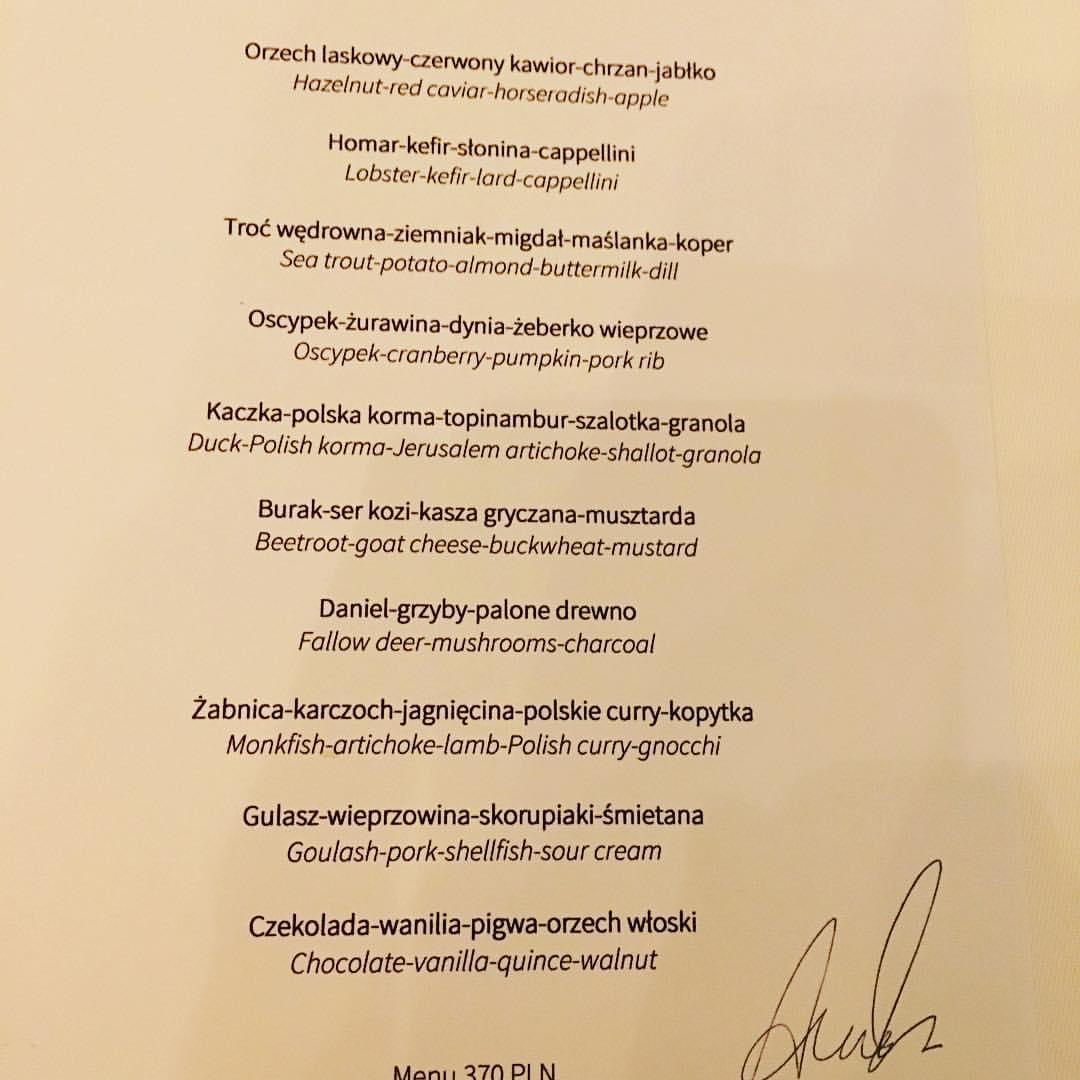 Orzech laskowy-czerwony kawior-chrzan-jabłko
Hazelnut-red caviar-horseradish-apple
Homar-kefir-słonina-cappellini
Lobster-kefir-lard-cappellini
Troć wędrowna-ziemniak-migdał-maślanka-koper
Sea trout-potato-almond-buttermilk-dill
Oscypek-żurawina-dynia-żeberko wieprzowe
Oscypek-cranberry-pumpkin-pork rib
Kaczka-polska korma-topinambur-szalotka-granola
Duck-Polish korma-Jerusalem artichoke-shallot-granola
Burak-ser kozi-kasza gryczana-musztarda
Beetroot-goat cheese-buckwheat-mustard
Daniel-grzyby-palone drewno
Fallow deer-mushrooms-charcoal
Żabnica-karczoch-jagnięcina-polskie curry-kopytka
Monkfish-artichoke-lamb-Polish curry-gnocchi
Gulasz-wieprzowina-skorupiaki-śmietana
Goulash-pork-shellfish-sour cream
Czekolada-wanilia-pigwa-orzech włoski
Chocolate-vanilla-quince-walnut
Menu 370 PLN